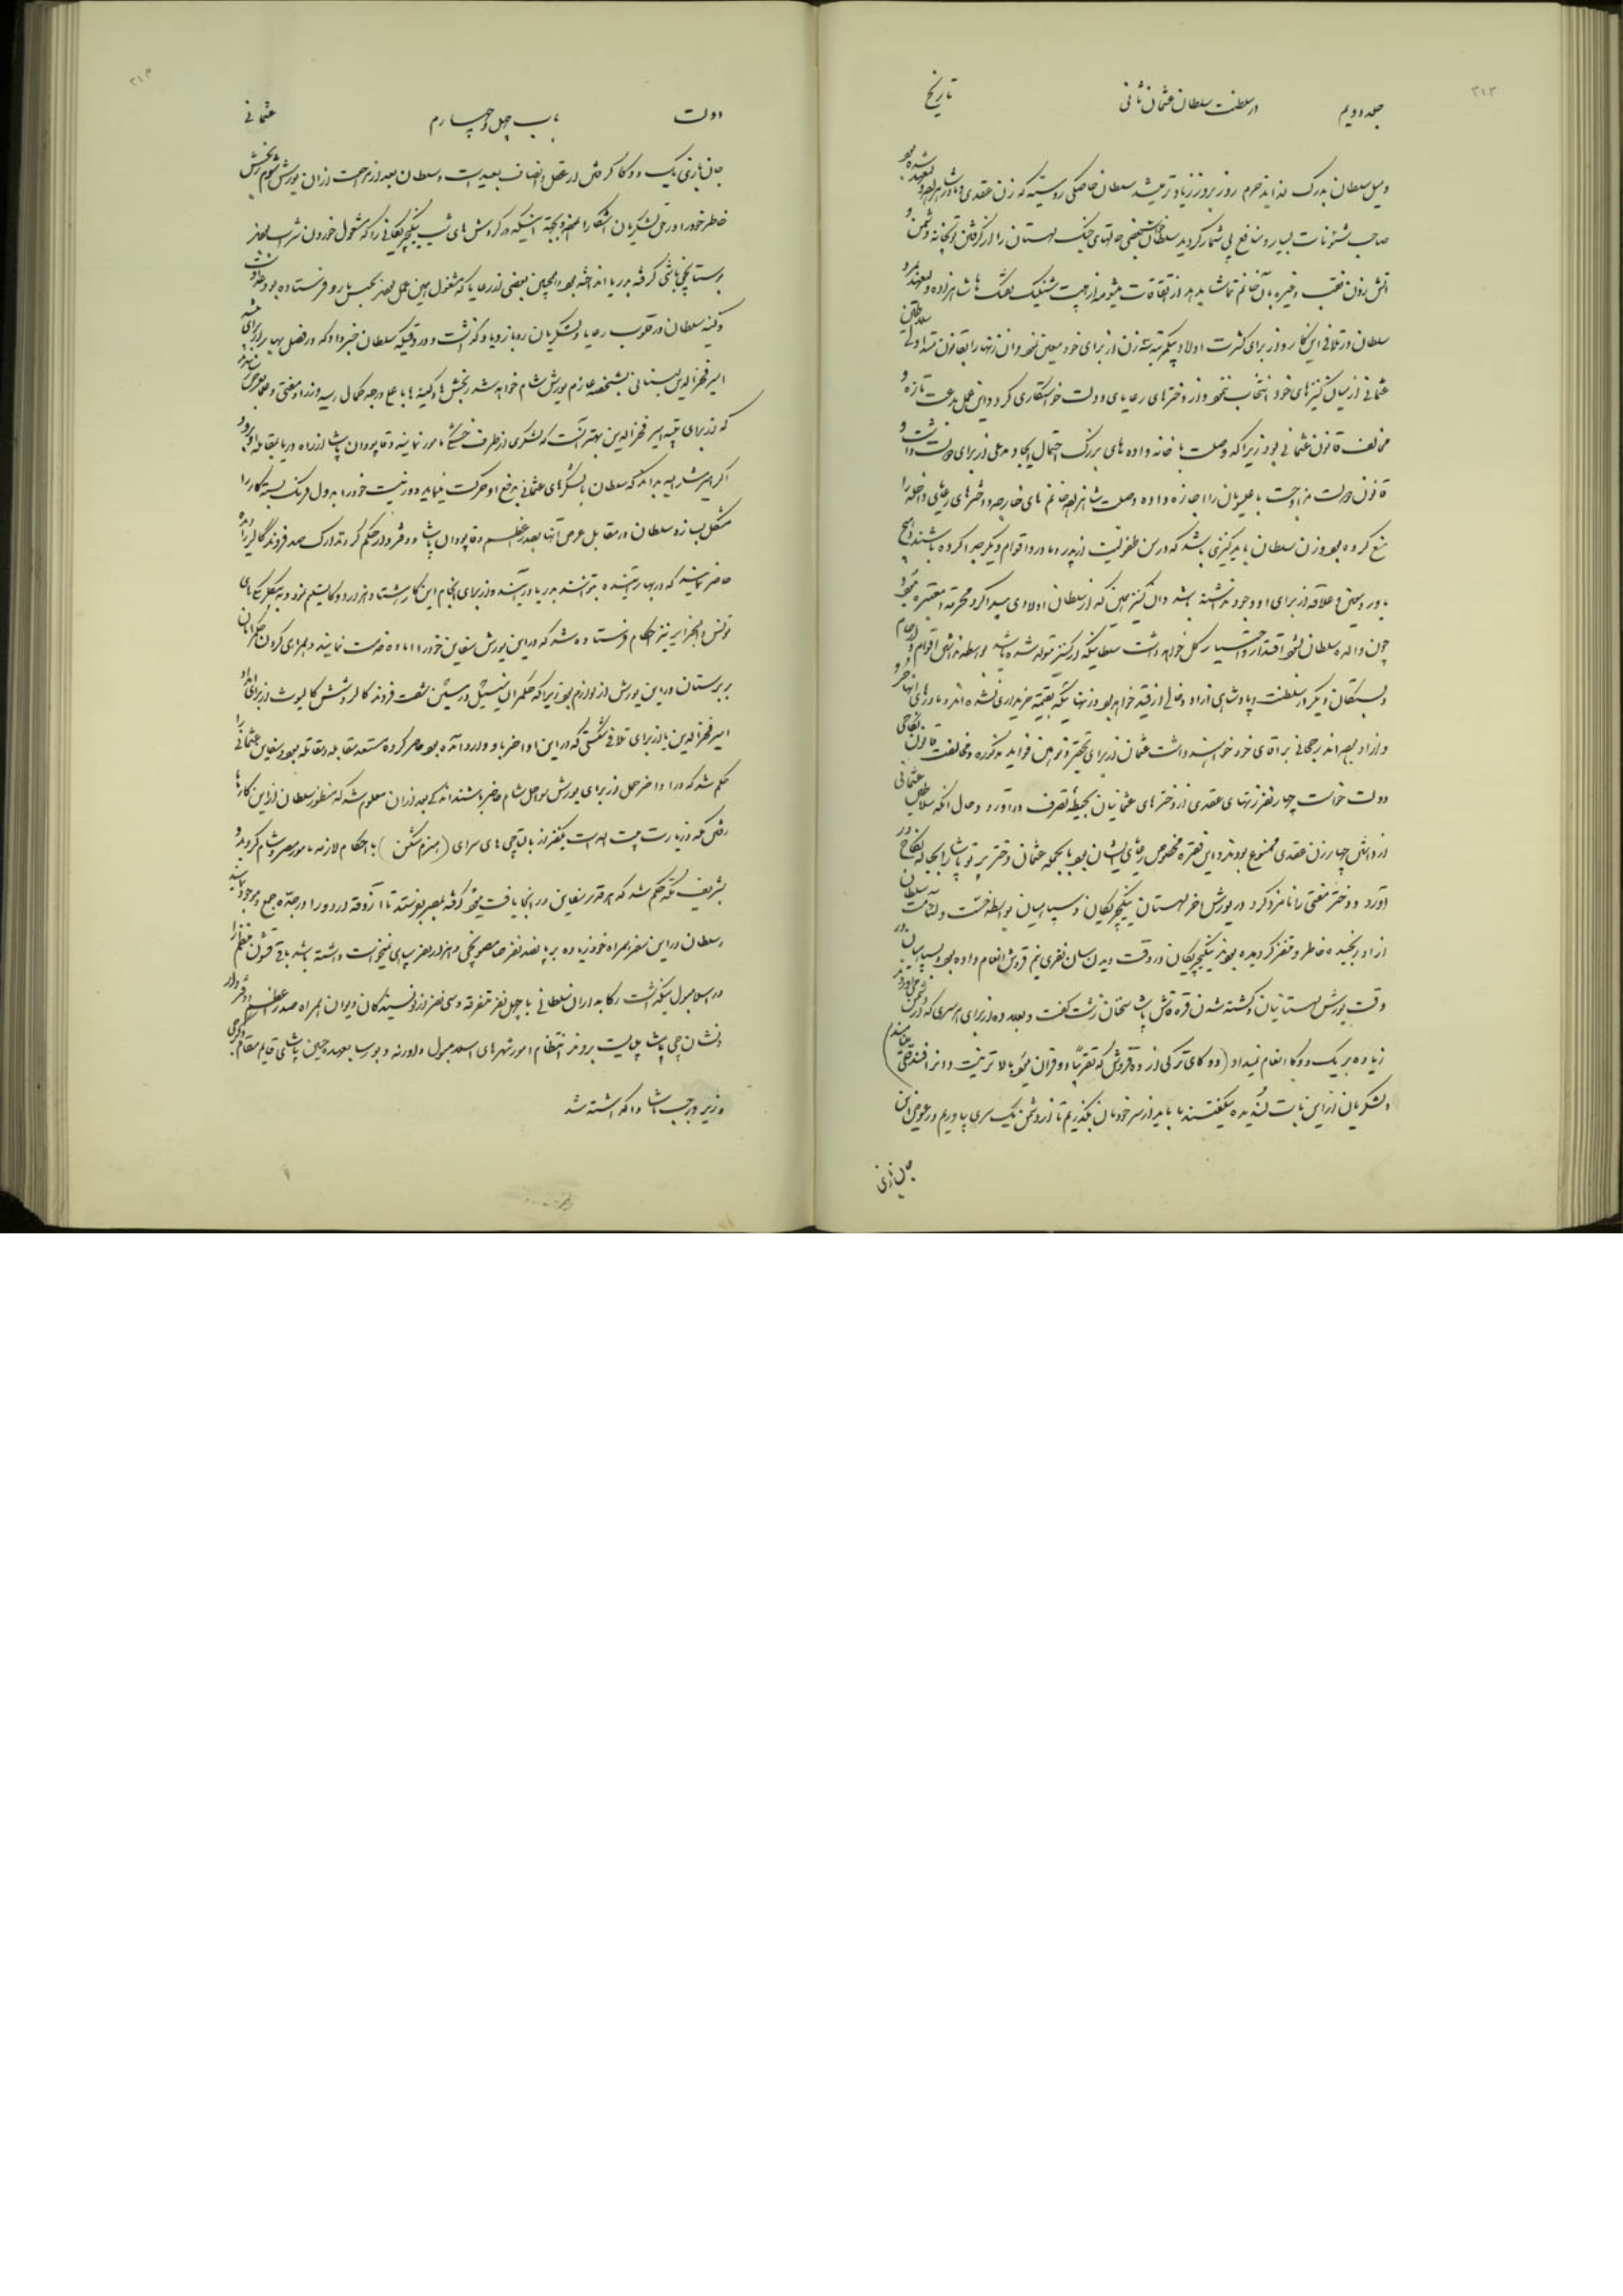 ۲۱۲
جلد دویم در سلطنت سلطان عثمان ثانی تاریخ
و میل سلطان بدرک لذاید حرم روز بروز زیادتر میشد سلطان خاصکی روسیه که زن عقدی و مادر شاهزاده ولیعهد شده بود
صاحب شئونات بسیار و منافع بی شمار گردید سلطان حالتهای جنک لهستان را از گرفتن توپخانه دشمن و
اتش زدن نقب و غیره بآن خانم تماشا از اتفاقات شلیک تفنک ها شاهزاده ولیعهد مرد و
سلطان در تلافی این کار و از برای کثرت اولاد یکمرتبه سه زن از برای خود معین نمود و ان زنها را بقانون متداولی سلاطین
عثمانی از میان کنیزهای خود انتخاب ننمود و از دخترهای رعایای دولت خواستکاری کرد و این عمل بدعت تازه و
مخالف قانون عثمانی بود زیرا که وصلت با خانه واده های بزرک احتمال ایجاد مدعی از برای دولت داشت و
قانون دولت مزاوجت با را اجازه داده وصلت شاهزاده خانم های خارجه و دخترهای رعایای داخله را
منع کرده بود و زن سلطان باید کنیزی باشد که در سن طفولیت از پدر و مادر و اقوام دیگر جدا کرده باشند و هیچ
یاور و معین و علاقه از برای او وجود نداشته باشد و ان کنیز همین که از سلطان اولادی پیدا کرد محترمه و معتبره میشود و
چون والده سلطان بشود اقتدار و اختیار کل خواهد داشت سلطانیکه از کنیز متولد شده باشد بواسطه نداشتن اقوام و ارحام
و بستگان دیگر در سلطنت و پادشاهی ازاد و خالی از قید خواهد بود و زنهائیکه بقیمت خریداری نشده اند و مادرهای انها حر و
و ازاد بوده اند برجحانی بر اقای خود خواهند داشت عثمان از برای تحقیر و توهین فواید مذکوره و مخالفت قانون نکاحی
دولت خواست چهار نفر زنهای عقدی از دخترهای عثمانیان بحیطه تصرف دراورد و حال انکه سلاطین عثمانی
از داشتن چهار زن عقدی ممنوع بودند و این فقره مخصوص رعایای ایشان بود بالجمله عثمان دختر پرتو پاشا را بحباله نکاح در
آورد و دختر مفتی را نامزد کرد در یورش اخر لهستان ینکیچریکان و سپاهیان بواسطه خست و لئامت سلطان
از او رنجیده خاطر و متنفر گردیده بودند ینکیچریکان در وقت دیدن سان نفری نیم قروش انعام داده بود و بسپاهیان در
وقت یورش لهستانیان و کشته شدن قره قاش پاشا سخنان زشت گفت و بعلاوه از برای هر سری که از دشمن میاوردند
زیاده بر یک دوکا انعام نمیداد (دوکای ترکی از ده قروش که تقریبا دو قران میشود بالاتر نیست)
و لشکریان از این بابت رنجیده میگفتند ما باید از سر خودمان بگذریم تا از دشمن یک سری بیاوریم در عوض این
جان بازی
۲۱۳
دولت باب چهل و چهارم عثمانی
جان بازی یک دوکا گرفتن از عقل و انصاف بعید است و سلطان بعد از مراجعت از ان یورش شوم رنجش
خاطر خود را در حق لشکریان اشکارا نمود و بجهة اینکه در گردش های شب ینکیچریکانی را که مشغول خوردن شراب بودند
بوستانچی باشی گرفته بدریا انداخته بود و همچنین بعضی از رعایا که مشغول همین عمل بودند بحبس یا رو فرستاده بود عداوت
و کینه سلطان در قلوب رعایا و لشکریان رو بازدیاد گذاشت و در وقتیکه سلطان خبر داد که در فصل بهار برای تنبیه
امیر فخرالدین لبنانی بنفسه عازم یورش شام خواهد شد رنجش ها و کینه ها باعلا درجه کمال رسید وزرا و مفتی و علما عرض کردند
که از برای تنبیه امیر فخرالدین بهتر آنست که لشکری از طرف خشکی مامور نمایند و قاپودان پاشا از راه دریا بمقابله او برود و
اگر امیر مشار الیه بداند که سلطان با لشکرهای عثمانی بدفع او حرکت مینماید در نیت خود را بدول فرنک بسته کار را
مشکل بسازد سلطان در مقابل عرض آنها بصدر اعظم و قاپودان پاشا و دفتردار حکم کرد تدارک صد فروند گالر را دیده
حاضر نمایند که در بهار آینده بتوانند بدریا درآیند و از برای انجام این کار شصت هزار دوکا تسلیم نمود و به بکلربکی های
تونس و الجزایر نیز احکام فرستاده شد که در این یورش سفاین خود را اماده خدمت نمایند و همراهی کردن حکمرانان
بربرستان در این یورش از لوازم بود زیرا که حکمران شصت فروند کالر و شش کالیوت از برای امداد
امیر فخرالدین یا از برای تلافی شکستی که در این اواخر باو وارد آمده بود حاضر کرده مستعد مقابله و مقاتله بود و سفاین عثمانی را
حکم شد که در اواخر حمل از برای یورش سواحل شام حاضر باشند اندکی بعد از ان معلوم شد که منظور سلطان از این کارها
رفتن مکه و زیارت بیت الله است یکنفر از بالتاجی های سرای (هیزم شکن) با احکام لازمه مامور مصر و شام گردید و
بشریف مکه حکم شد که هر قدر سفاین در انجا یافت میشود گرفته بمصر بفرستد تا آذوقه اردو را در جده جمع و موجود نماید
سلطان در این سفر همراه خود زیاده بر پانصد نفر و هزار نفر سپاهی نمیخواست داشته باشد باقی قشون منظم را
در اسلامبول میگذاشت رکابداران سلطانی با چهل نفر متفرقه و سی نفر از نویسندگان دیوان همراه صدر اعظم و دفتردار
و نشانچی پاشا میبایست بروند انتظام امور شهرهای اسلامبول و ادرنه و بورسا بعهده حسین پاشای قایم مقام و کرجی
وزیر و رجب پاشا واگذاشته شد